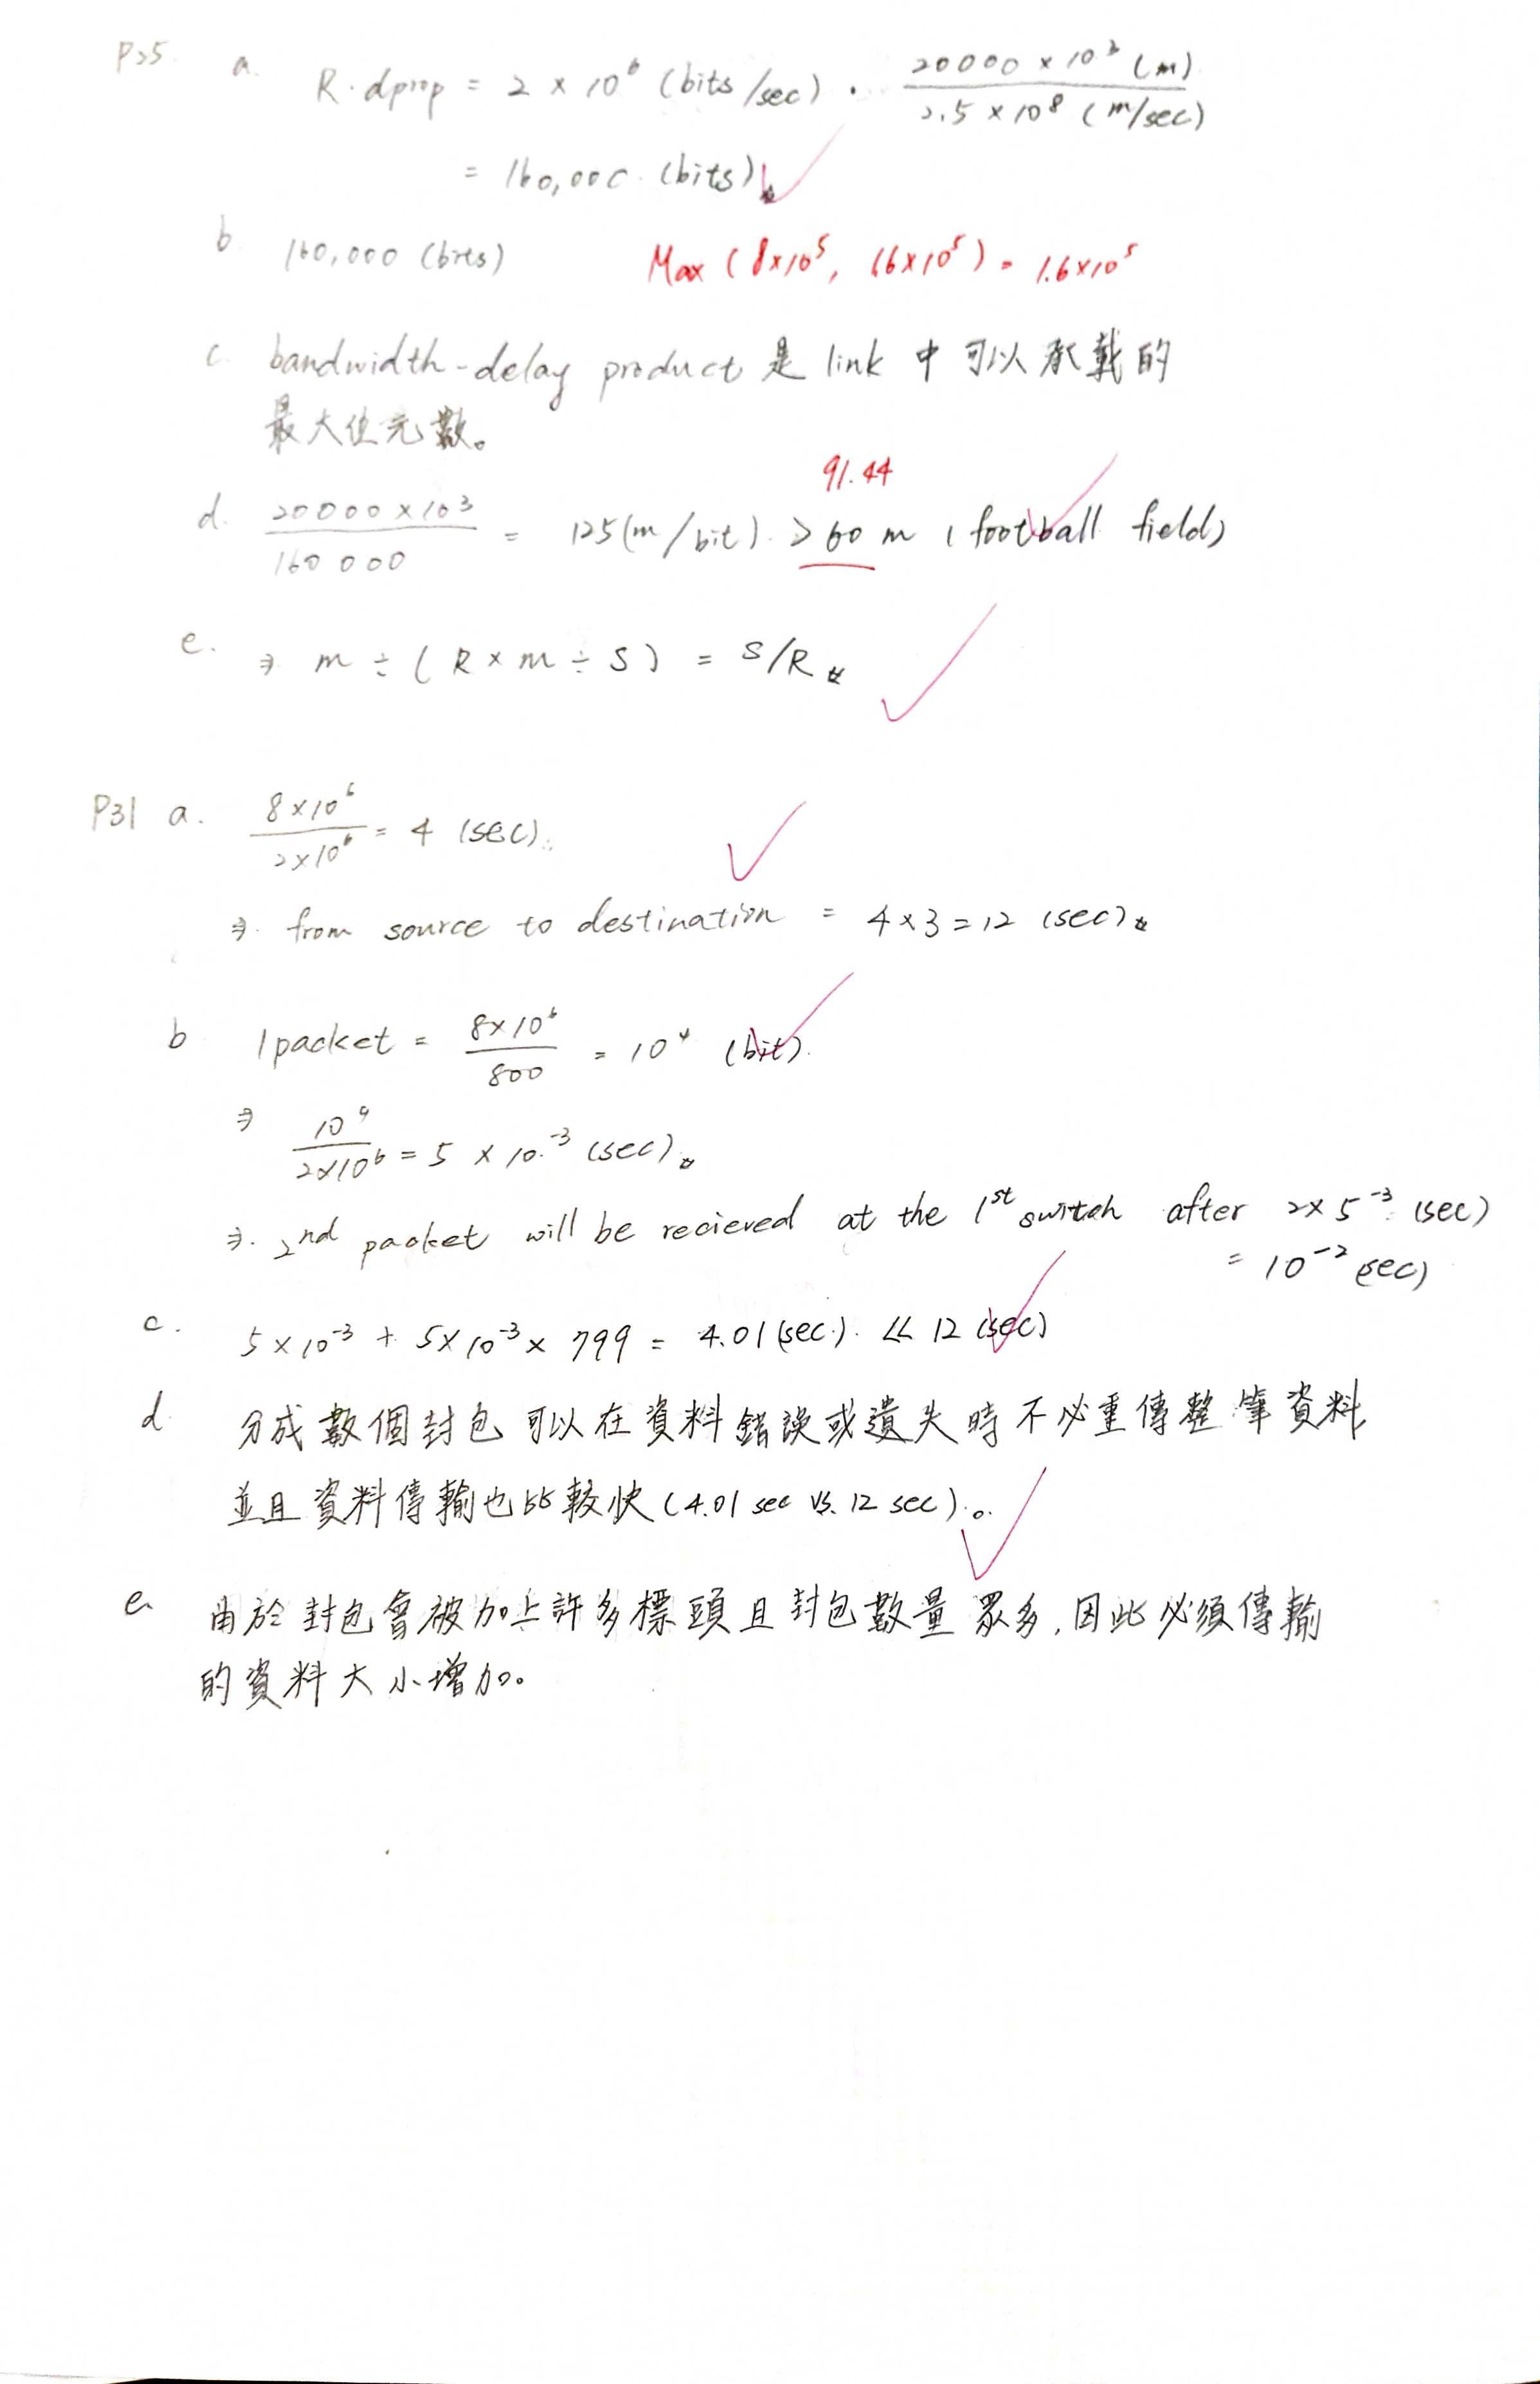 P25. a. R·dprop = 2 × 10⁶ (bits/sec) · 20000 × 10³ (m) / 2.5 × 10⁸ (m/sec)
= 160,000 (bits)
b 160,000 (bits) Max (8×10⁵, 1.6×10⁵) = 1.6×10⁵
c. bandwidth-delay product 是 link 中可以承載的
最大位元數。
91.44
d. 20000 × 10³ / 160000 = 125 (m/bit) > 60 m (football field)
e. ⇒ m ÷ (R × m ÷ S) = S/R
P31 a. 8×10⁶ / 2×10⁶ = 4 (sec).
⇒ from source to destination = 4 × 3 = 12 (sec)
b 1 packet = 8×10⁶ / 800 = 10⁴ (bit).
⇒ 10⁴ / 2×10⁶ = 5 × 10⁻³ (sec)
⇒ 2nd packet will be recieved at the 1st switch after 2×5⁻³ (sec)
= 10⁻² (sec)
c. 5×10⁻³ + 5×10⁻³ × 799 = 4.01 (sec). ≪ 12 (sec)
d 分成數個封包可以在資料錯誤或遺失時不必重傳整筆資料
並且資料傳輸也比較快 (4.01 sec vs. 12 sec)。
e. 由於封包會被加上許多標頭且封包數量眾多,因此必須傳輸
的資料大小增加。